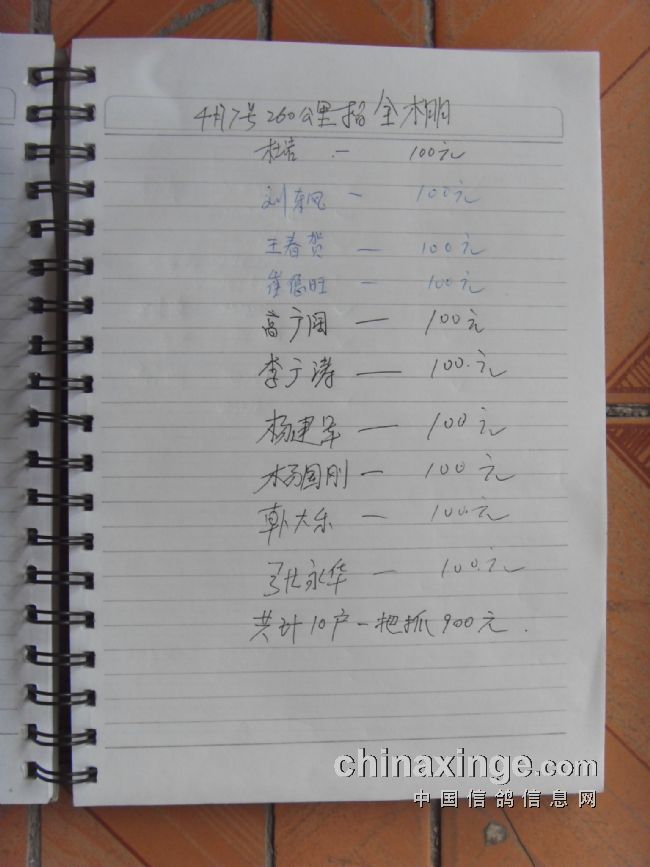 4月7号260公里指金棚
杜浩 — 100元
刘东风 — 100元
王春贺 — 100元
崔德旺 — 100元
高广阔 — 100元
李广涛 — 100元
杨建军 — 100元
杨国刚 — 100元
韩大乐 — 100元
张永华 — 100元
共计10户一把抓900元.
chinaxinge.com
中国信鸽信息网